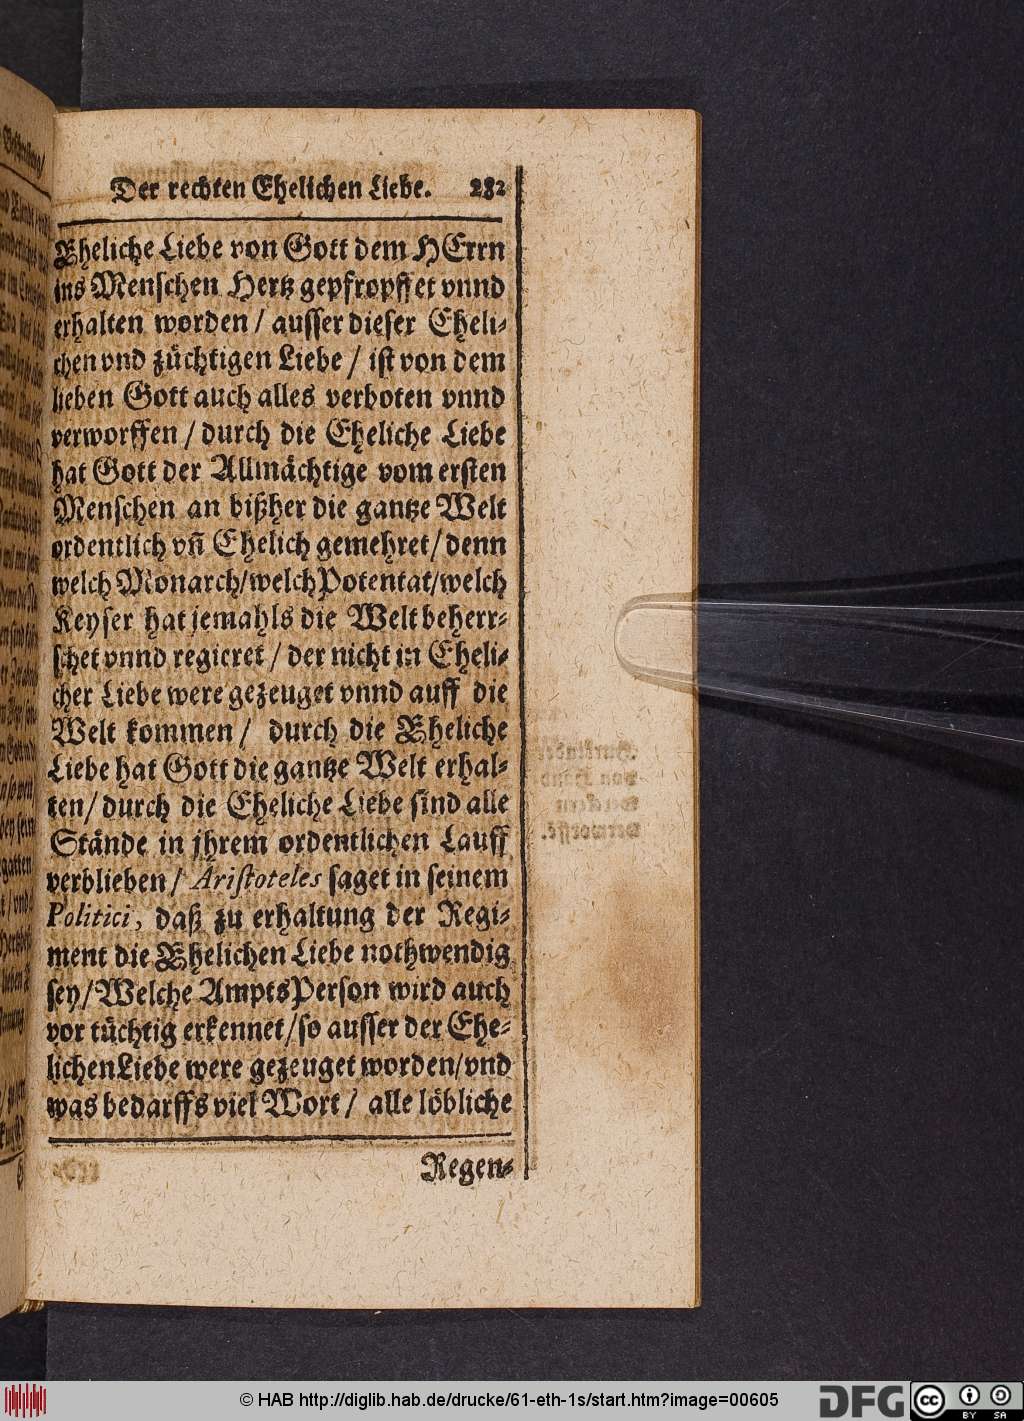 Der rechten Ehelichen Liebe. 282
Eheliche Liebe von Gott dem HErrn
ins Menschen Hertz gepfropffet vnnd
erhalten worden / ausser dieser Eheli-
chen vnd züchtigen Liebe / ist von dem
lieben Gott auch alles verboten vnnd
verworffen / durch die Eheliche Liebe
hat Gott der Allmächtige vom ersten
Menschen an bißher die gantze Welt
ordentlich vñ Ehelich gemehret / denn
welch Monarch / welch Potentat / welch
Keyser hat jemahls die Welt beherr-
schet vnnd regieret / der nicht in Eheli-
cher Liebe were gezeuget vnnd auff die
Welt kommen / durch die Eheliche
Liebe hat Gott die gantze Welt erhal-
ten / durch die Eheliche Liebe sind alle
Stände in jhrem ordentlichen Lauff
verblieben / Aristoteles saget in seinem
Politici, daß zu erhaltung der Regi-
ment die Ehelichen Liebe nothwendig
sey / Welche AmptsPerson wird auch
vor tüchtig erkennet / so ausser der Ehe-
lichen Liebe were gezeuget worden / vnd
was bedarffs viel Wort / alle löbliche
Regen-
© HAB http://diglib.hab.de/drucke/61-eth-1s/start.htm?image=00605
DFG
cc
BY SA